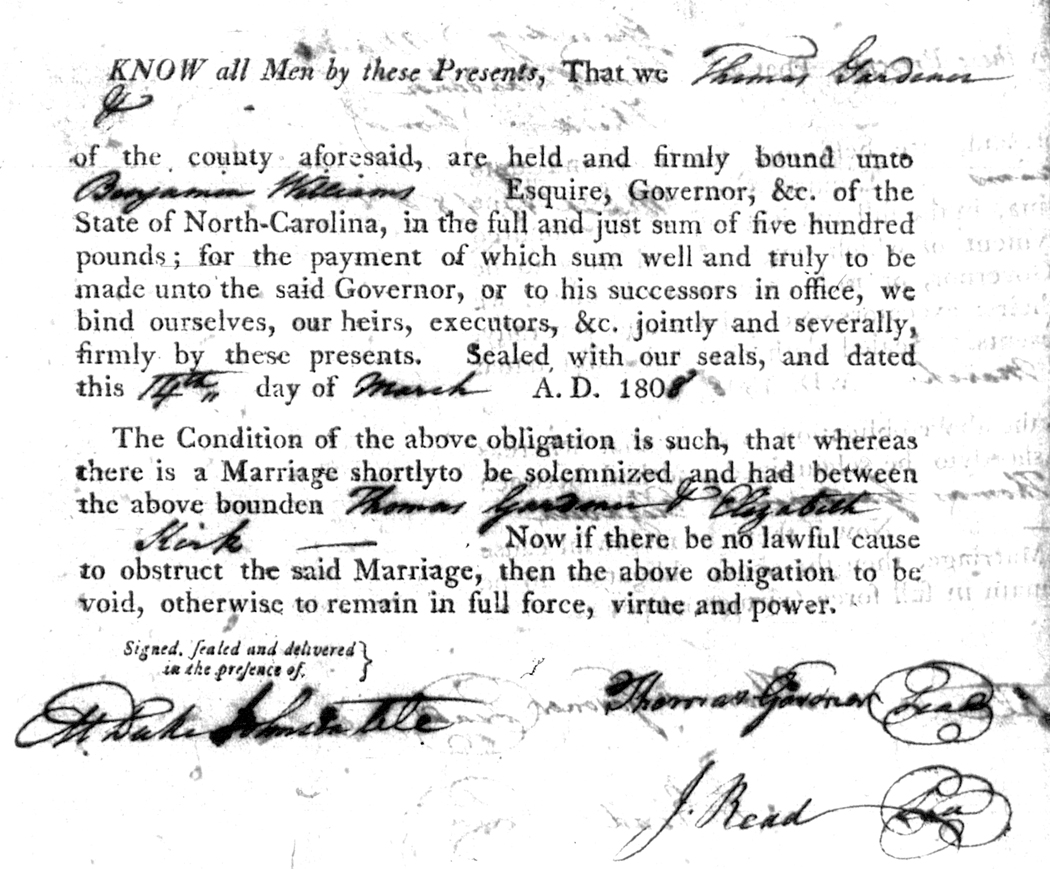 KNOW all Men by these Presents, That we Thomas Gardener
&
of the county aforesaid, are held and firmly bound unto
Benjamin Williams Esquire, Governor, &c. of the
State of North-Carolina, in the full and just sum of five hundred
pounds; for the payment of which sum well and truly to be
made unto the said Governor, or to his successors in office, we
bind ourselves, our heirs, executors, &c. jointly and severally,
firmly by these presents. Sealed with our seals, and dated
this 14th day of March A. D. 1808
The Condition of the above obligation is such, that whereas
there is a Marriage shortly to be solemnized and had between
the above bounden Thomas Gardner & Elizabeth
Kirk Now if there be no lawful cause
to obstruct the said Marriage, then the above obligation to be
void, otherwise to remain in full force, virtue and power.
Signed, ſealed and delivered
in the preſence of,
Duke Johnston
Thomas Gardner Seal
J. Read Sea